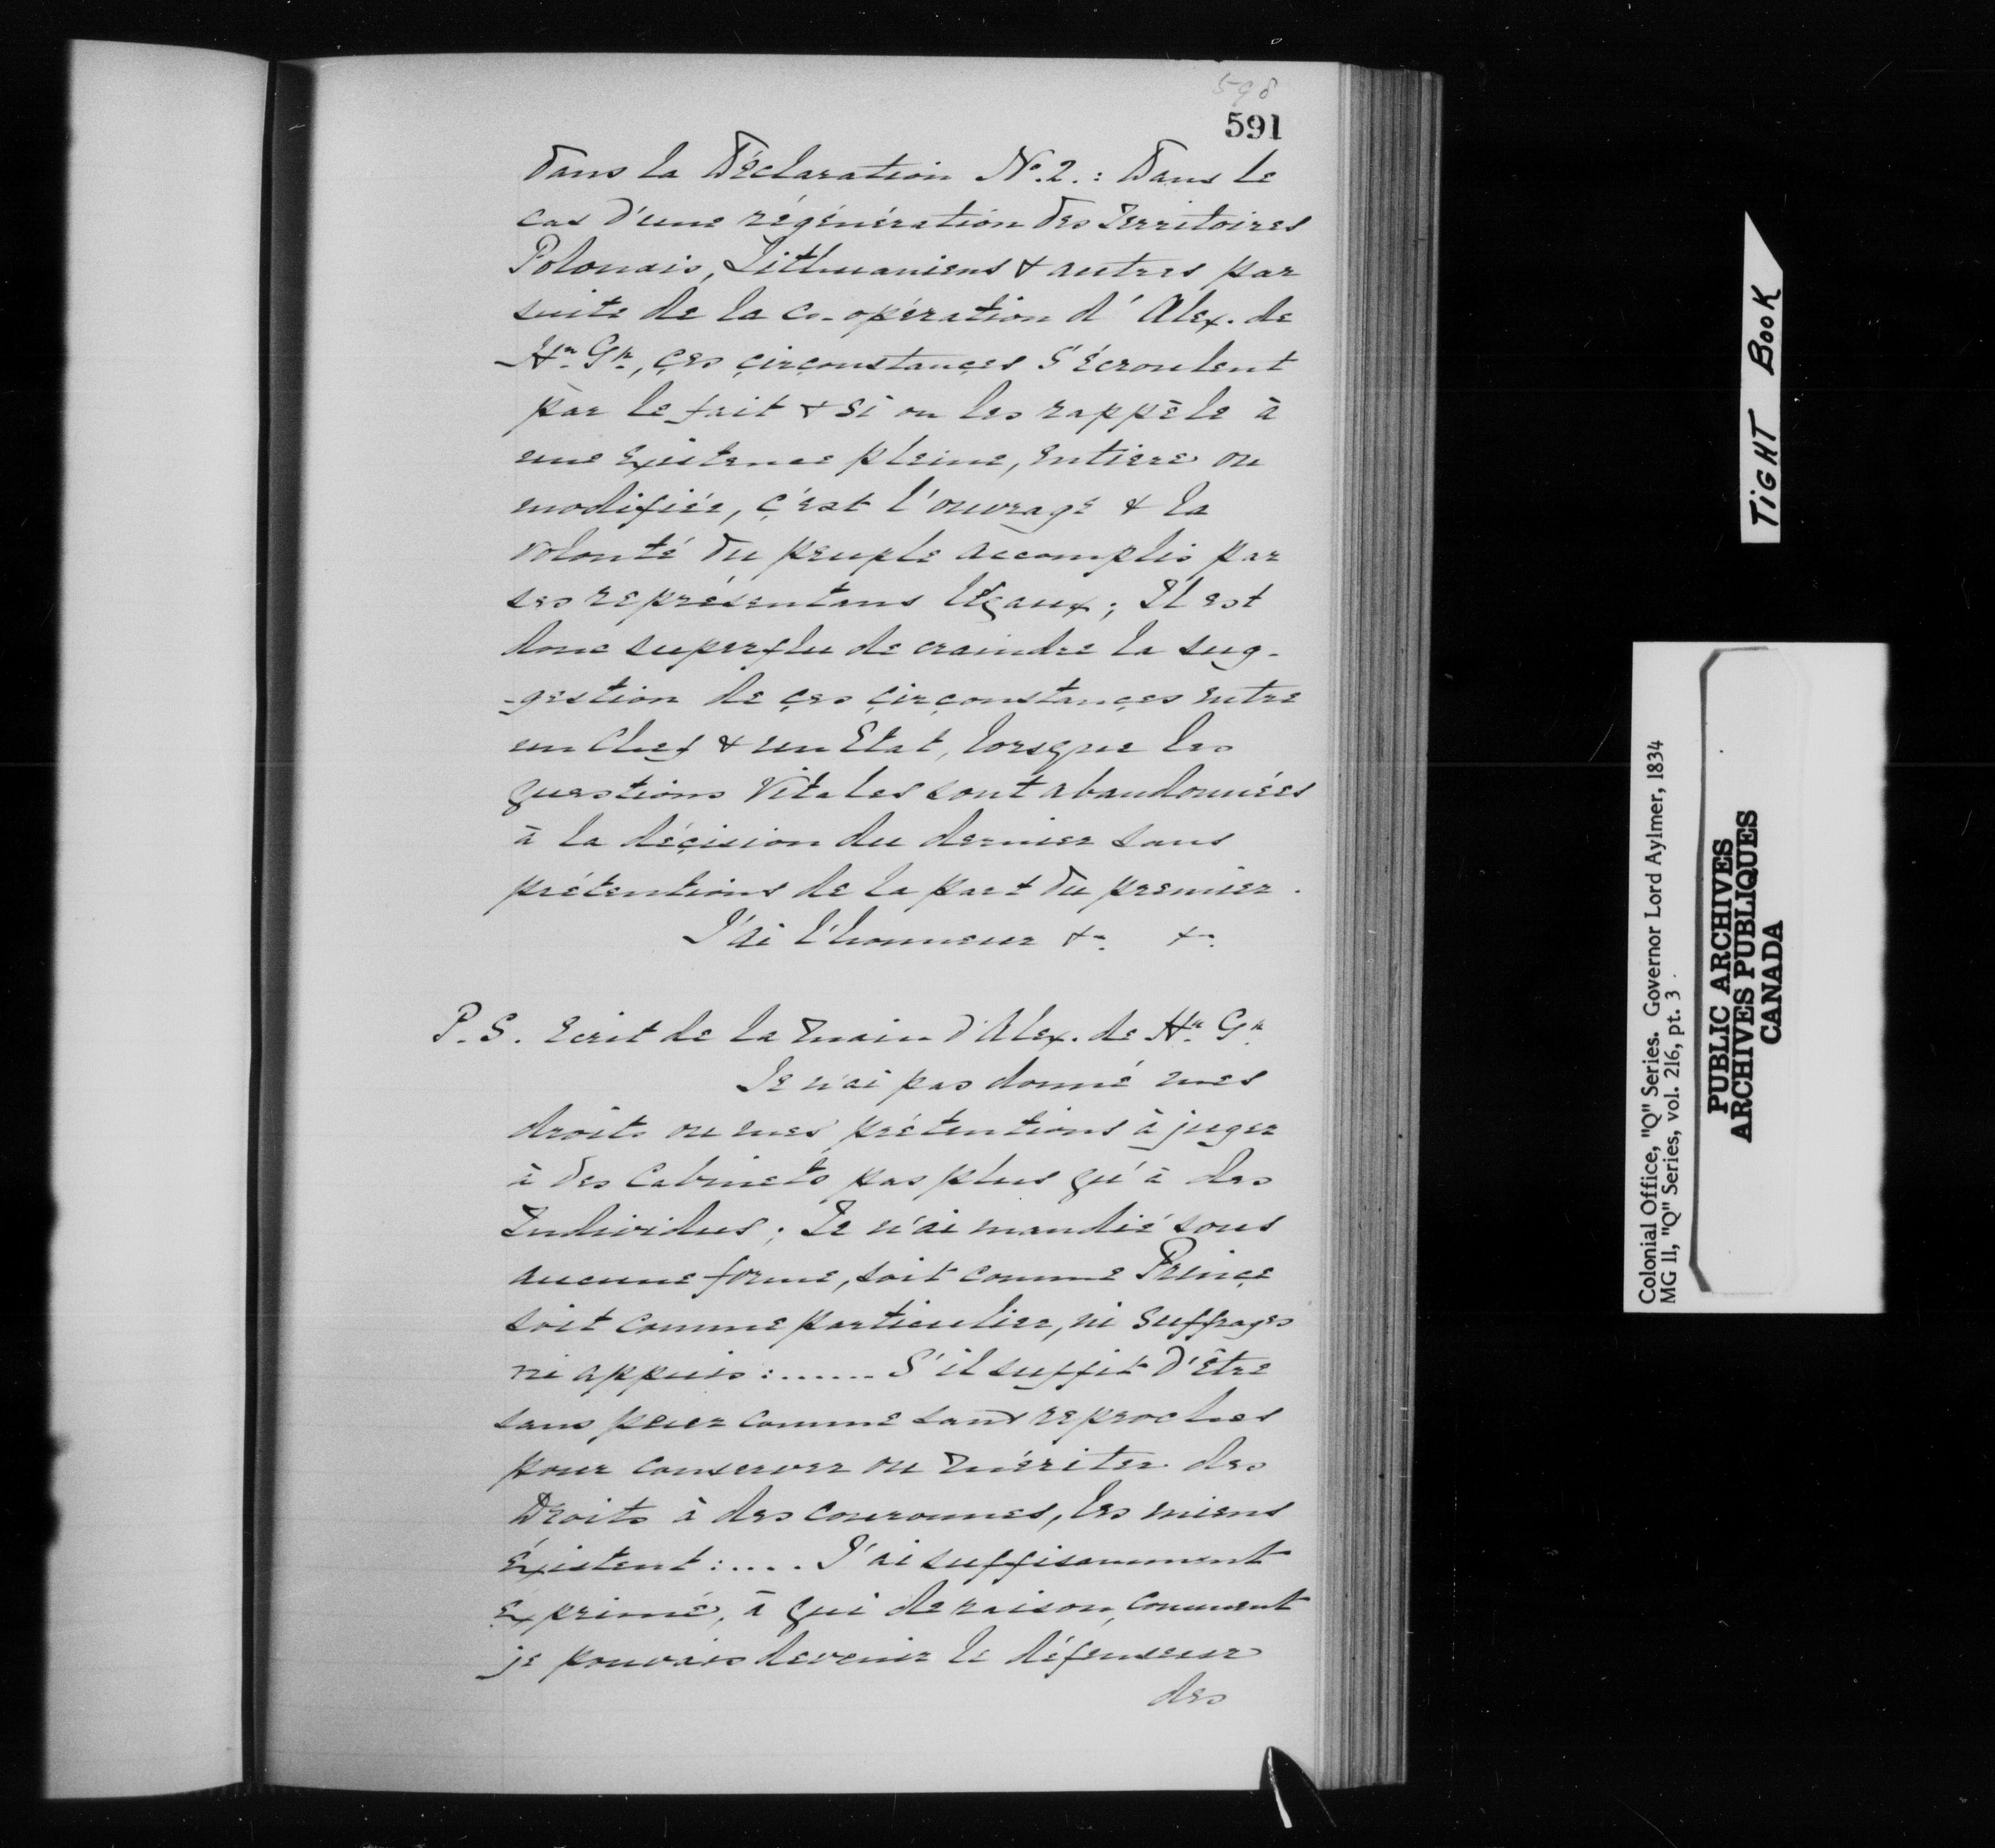 598
591
Dans la Déclaration No. 2. : Dans le
cas d'une régénération des Territoires
Polonais, Lithuaniens & autres par
suite de la co-opération d'Alex. de
Hn. Gn., çes çirçonstançes s'écroulent
par le fait & si on les rappèle à
une existence pleine, entiere ou
modifiée, c'est l'ouvrage & la
volonté du peuple accomplis par
ses représentans légaux; Il est
donc superflu de craindre la sug-
-gestion de çes çirçonstançes entre
un Chef & un Etat, lorsque les
questions Vitales sont abandonnées
à la déçision du dernier sans
prétentions de la part du premier.
J'ai l'honneur &a. &a.
P.S. Ecrit de la main d'Alex. de Hn. Gn.
Je n'ai pas donné mes
droits ou mes prétentions à juger
à des Cabinets pas plus qu'à des
Individus; Je n'ai mandié sous
aucune forme, soit comme Prinçe
soit comme particulier, ni suffrages
ni appuis : ....... S'il suffit d'être
sans peur comme sans reproches
pour conserver ou mériter des
Droits à des couronnes, les miens
éxistent : .... J'ai suffisamment
exprimé, à qui de raison, comment
je pouvais devenir le défenseur
des
TIGHT BOOK
Colonial Office, "Q" Series. Governor Lord Aylmer, 1834
MG 11, "Q" Series, vol. 216, pt. 3
PUBLIC ARCHIVES
ARCHIVES PUBLIQUES
CANADA